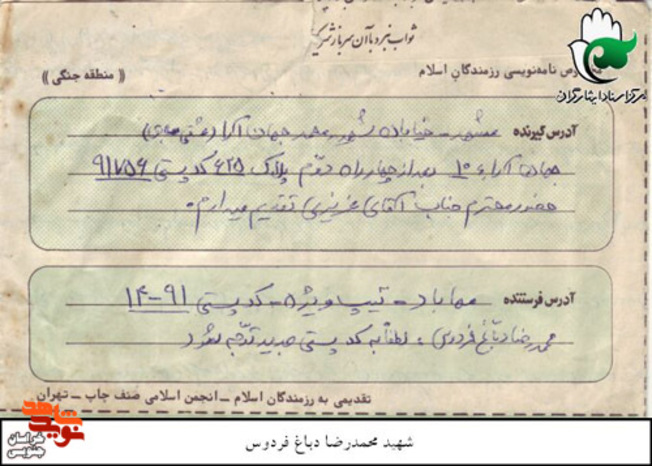 ثواب نبرد با آن سرباز شریک
مخصوص نامه‌نویسی رزمندگان اسلام
« منطقه جنگی »
مرکز اسناد ایثارگران
آدرس گیرنده مشهد - خیابان شهید محمد جهان آرا
جهان آرا ۱۰ بعد از چهارراه دوم پلاک ۶۲۵ کد پستی ۹۱۷۵۶
حضور محترم جناب آقای عزیزی تقدیم میدارم.
آدرس فرستنده مهاباد - تیپ ویژه - کد پستی ۹۱-۱۴
محمدرضا دباغ فردوس، لطفاً به کد پستی جدید توجه شود
تقدیمی به رزمندگان اسلام - انجمن اسلامی صنف چاپ - تهران
نوید شاهد
خراسان جنوبی
شهید محمدرضا دباغ فردوس